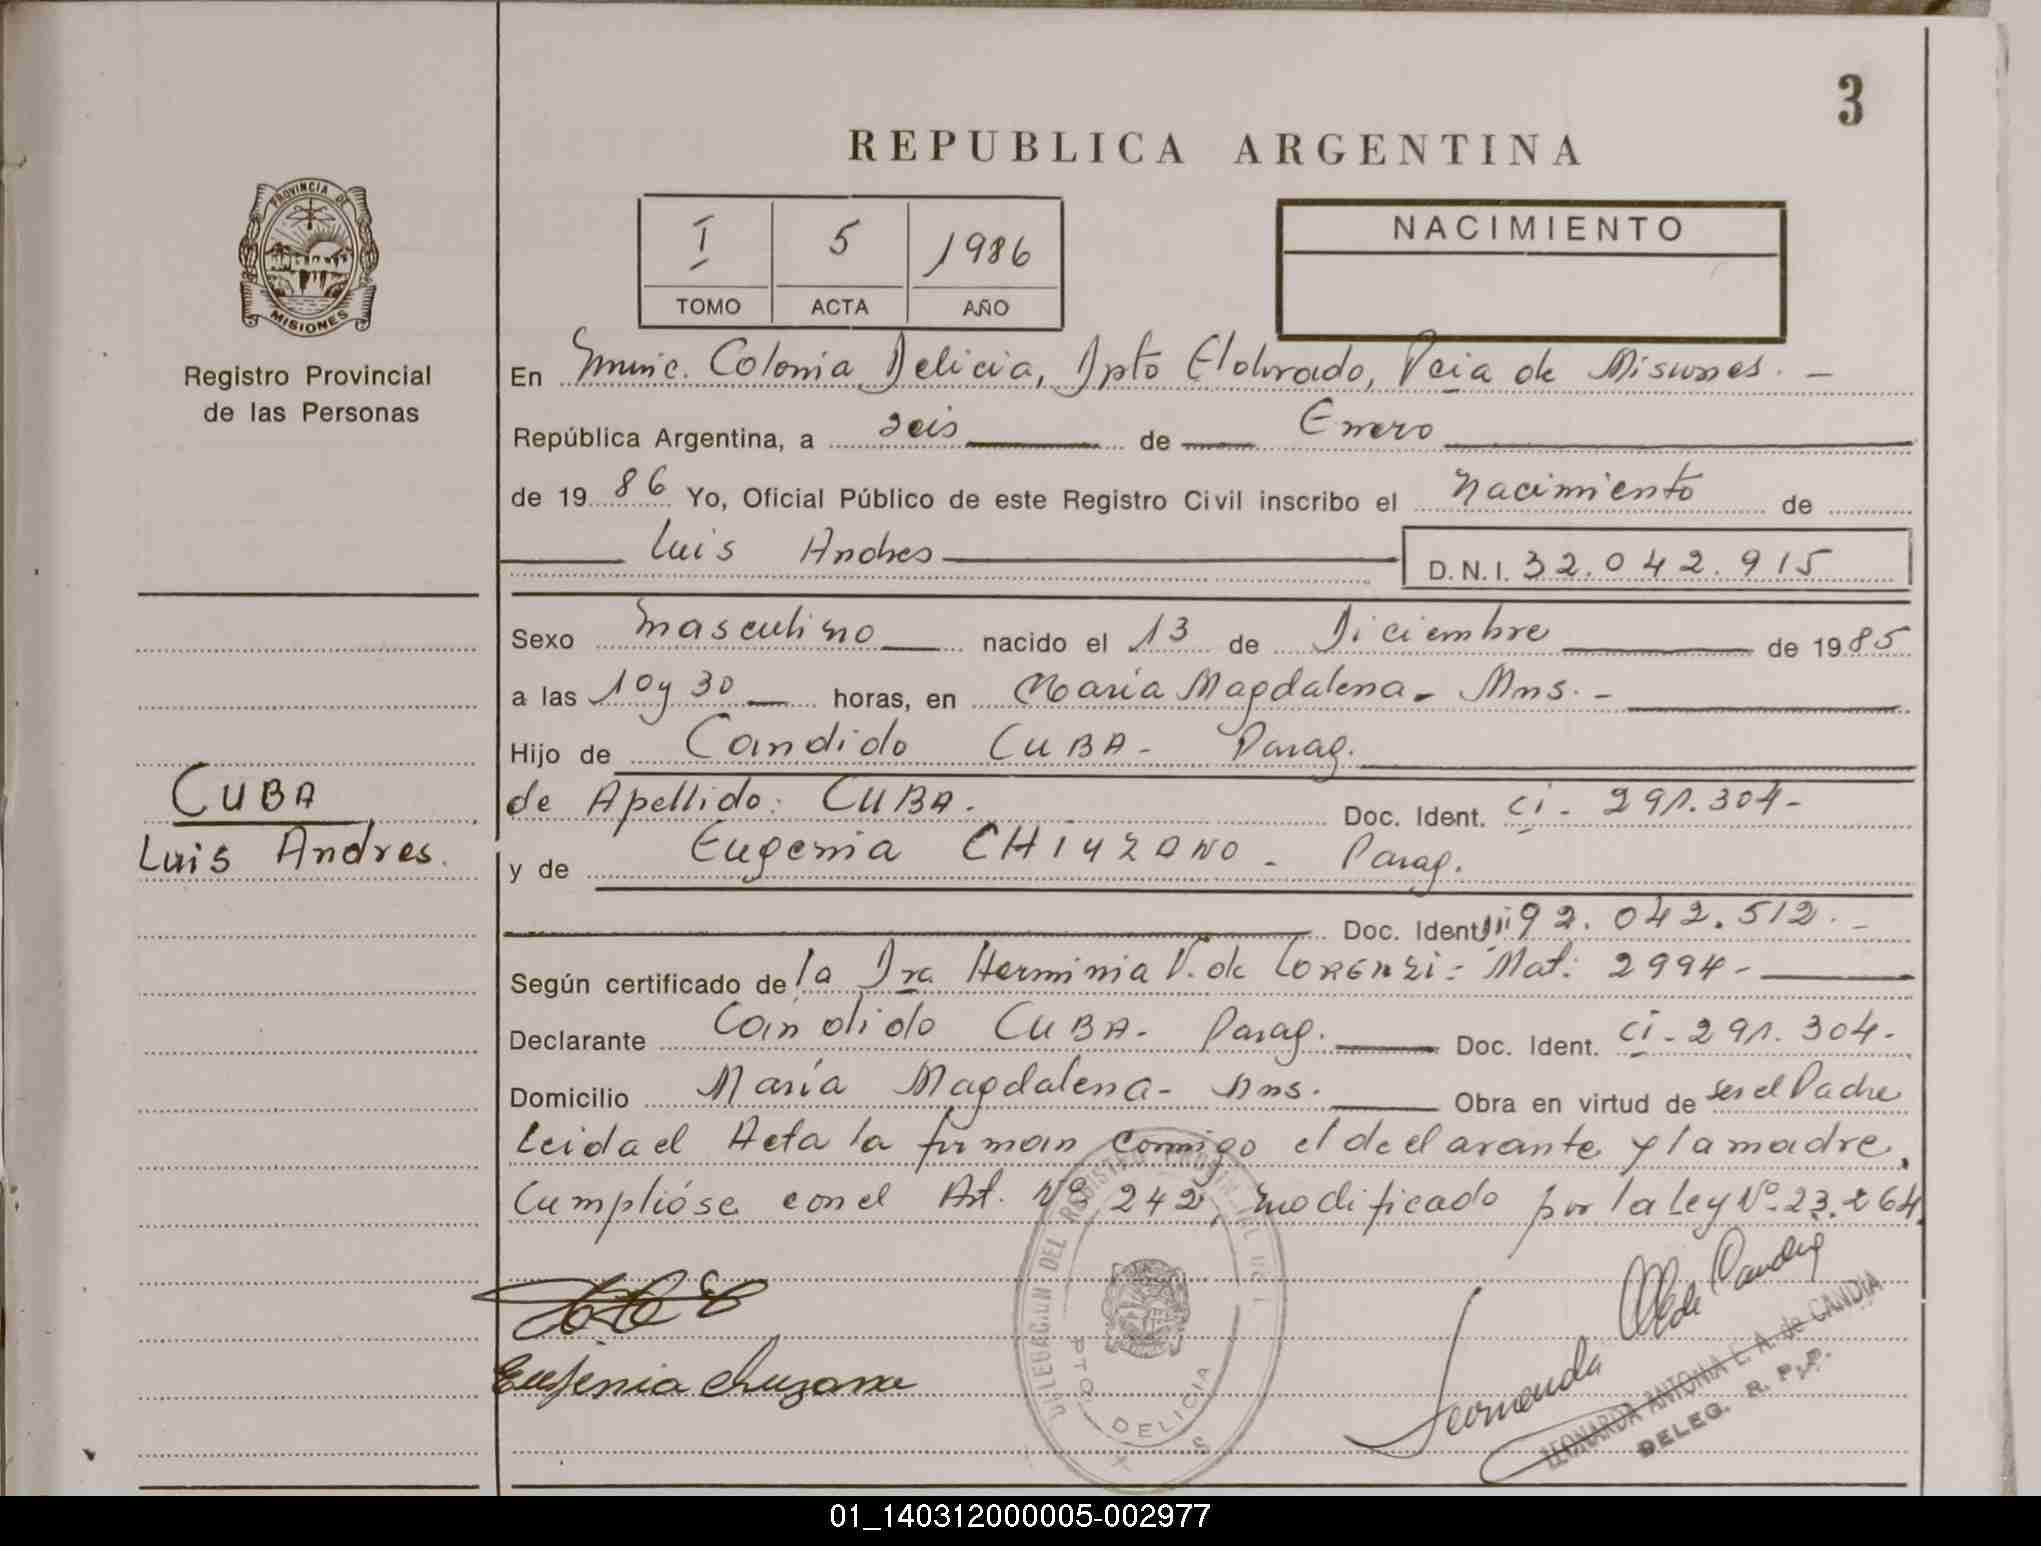 3
REPUBLICA ARGENTINA
PROVINCIA DE
MISIONES
Registro Provincial
de las Personas
I 5 1986
TOMO ACTA AÑO
NACIMIENTO
En Munic. Colonia Delicia, Dpto Eldorado, Pcia de Misiones. -
República Argentina, a seis de Enero
de 19 86 Yo, Oficial Público de este Registro Civil inscribo el Nacimiento de
Luis Andres
D.N.I. 32.042.915
Sexo Masculino nacido el 13 de Diciembre de 19 85
a las 10 y 30 horas, en Maria Magdalena - Mns. -
Hijo de Candido CUBA - Parag.
de Apellido: CUBA. Doc. Ident. ci - 291.304 -
CUBA
Luis Andres.
y de Eugenia - Parag.
Doc. Ident. 92.042.512. -
Según certificado de la Dra Herminia V. de LORENZI - Mat: 2994 -
Declarante Candido CUBA - Parag. Doc. Ident. ci - 291.304 -
Domicilio María Magdalena - Mns. Obra en virtud de ser el Padre
Leida el Acta la firman conmigo el declarante y la madre.
Cumplióse con el Art. Nº 242, modificado por la Ley Nº 23.264.
Eugenia
DELEGACION DEL REGISTRO PROVINCIAL DE L
PTO. DELICIA
LEONARDA ANTONIA E. A. de CANDIA
DELEG. R. P. P.
01_140312000005-002977